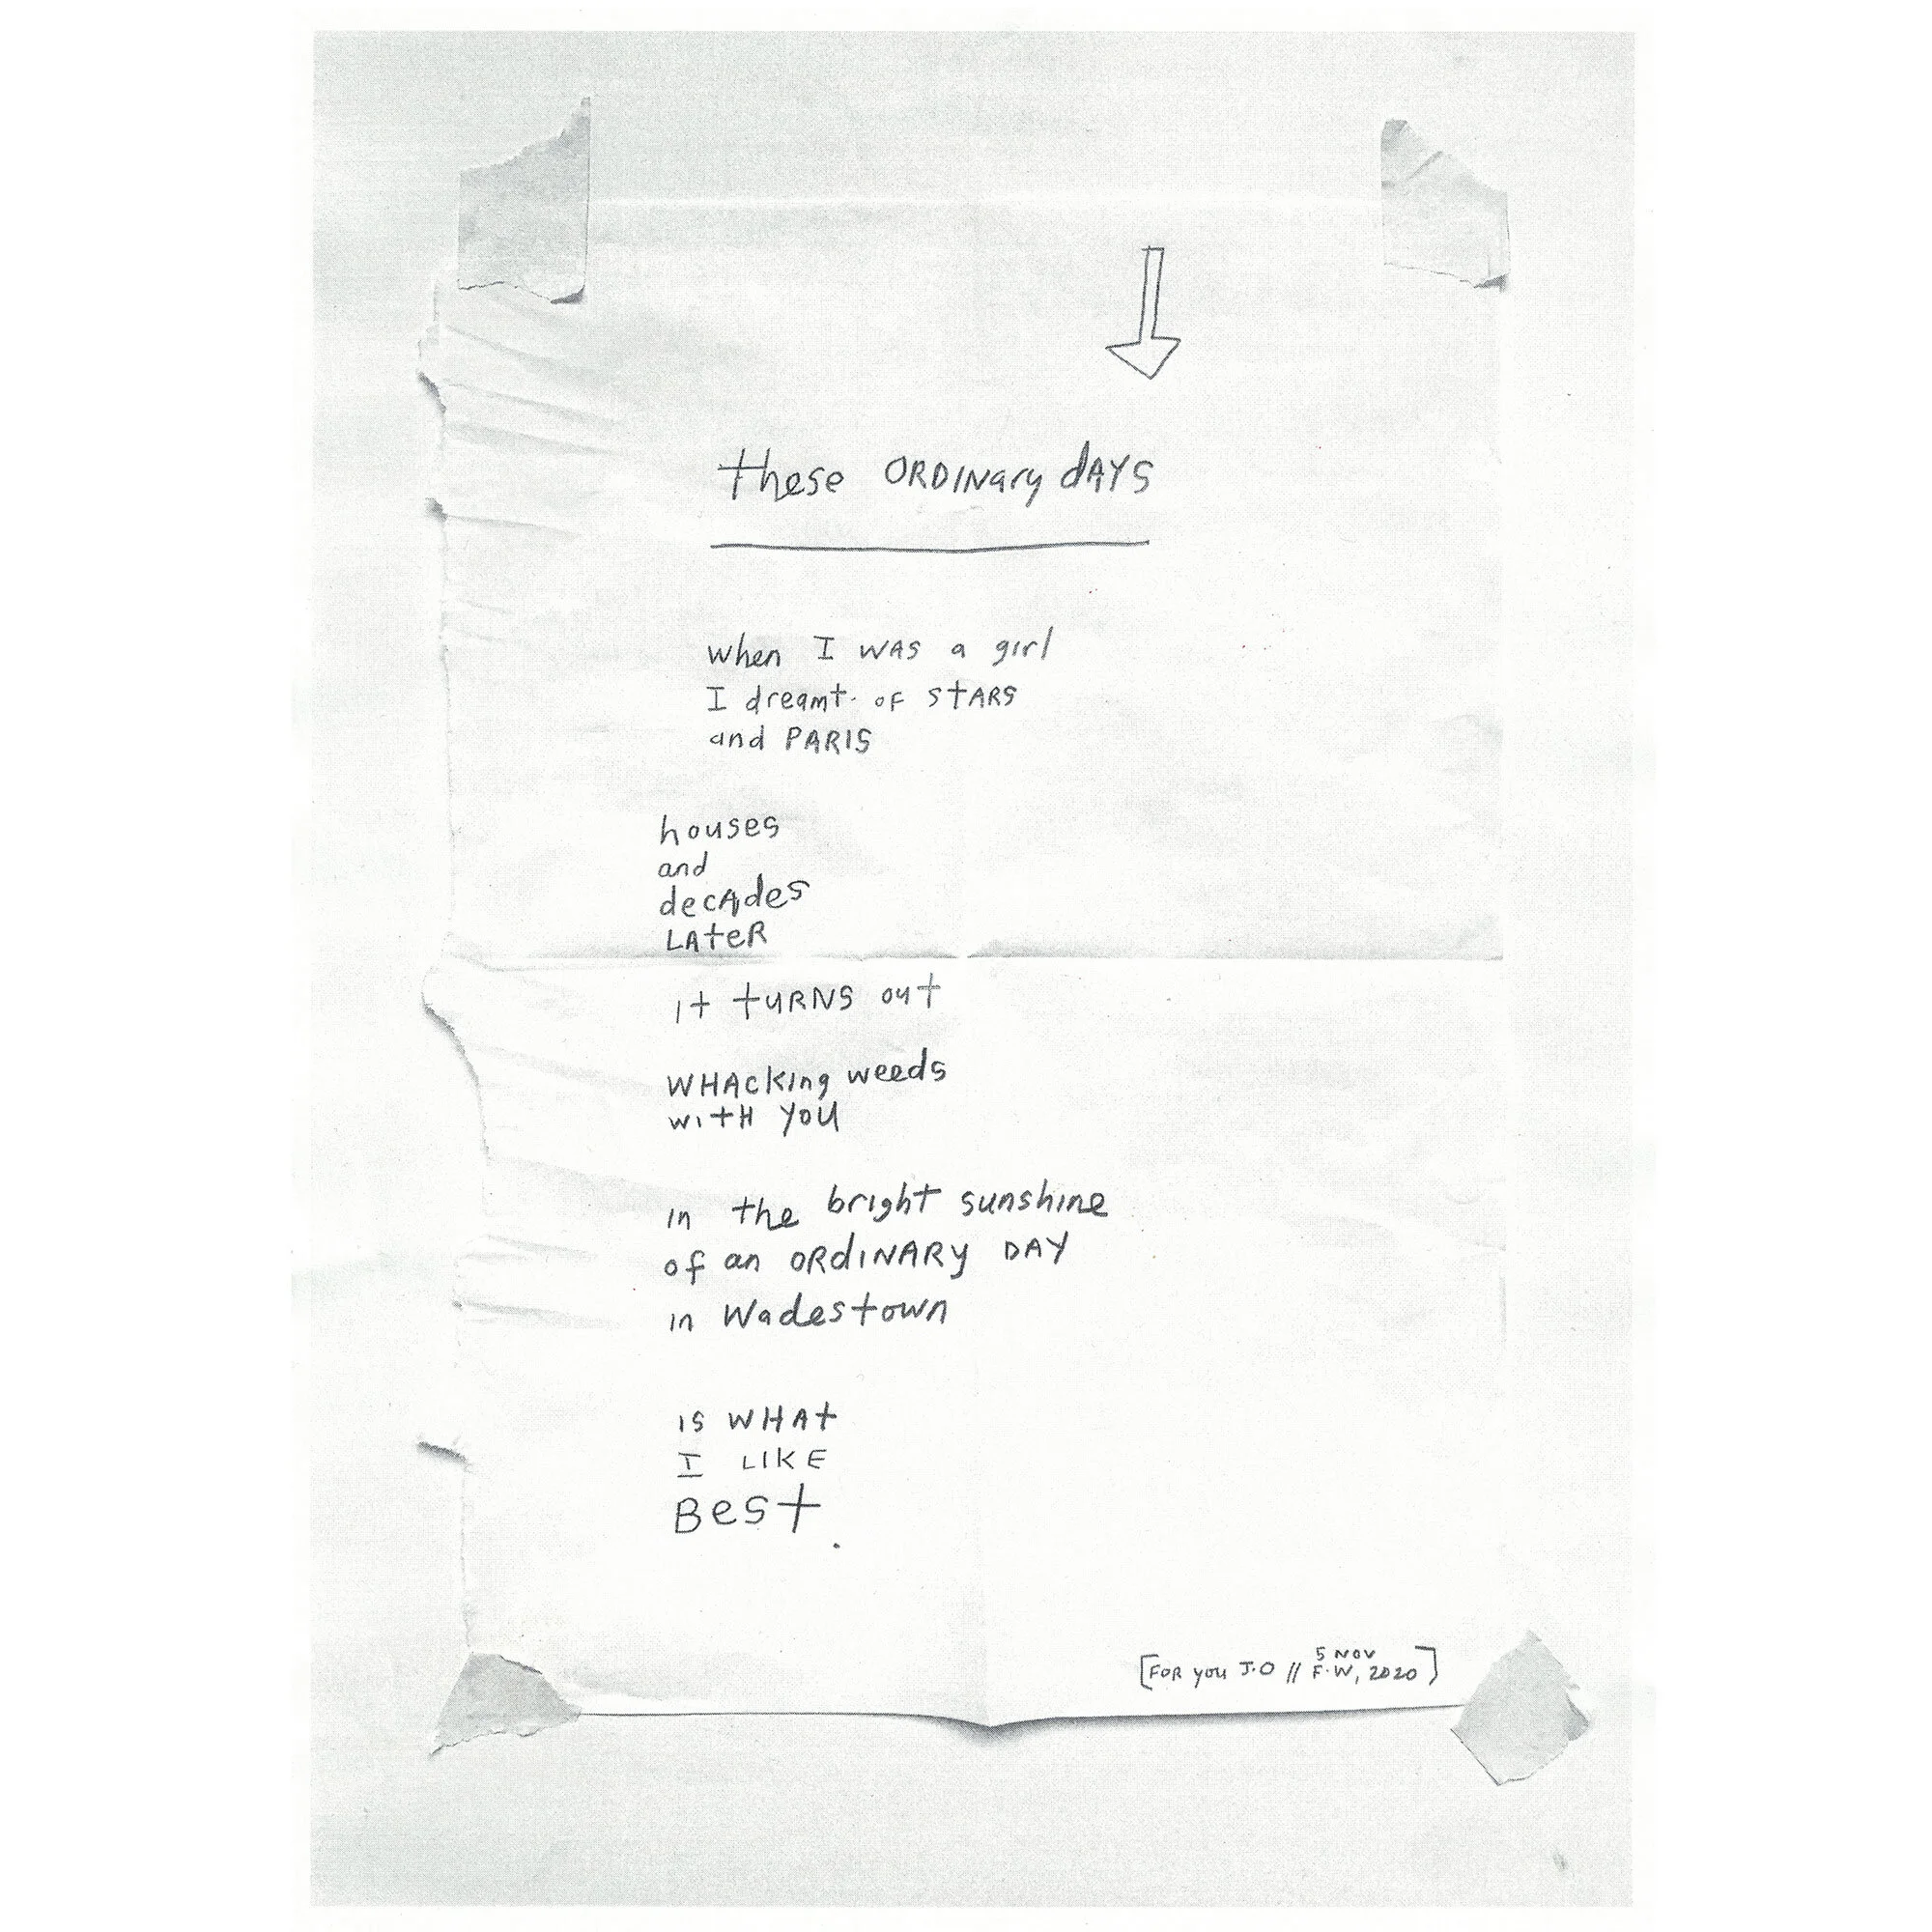 these ORDINary dAYS
when I WAS a girl
I dreamt. OF STARS
and PARIS
houses
and
decAdes
LAteR
it tURNS out
WHAcking weeds
wItH YOU
in the bright sunshine
of an ORdINARy DAY
in Wadestown
IS WHAt
I LIKE
Best.
[FOR you J.O // F.W, 5 NOV 2020]